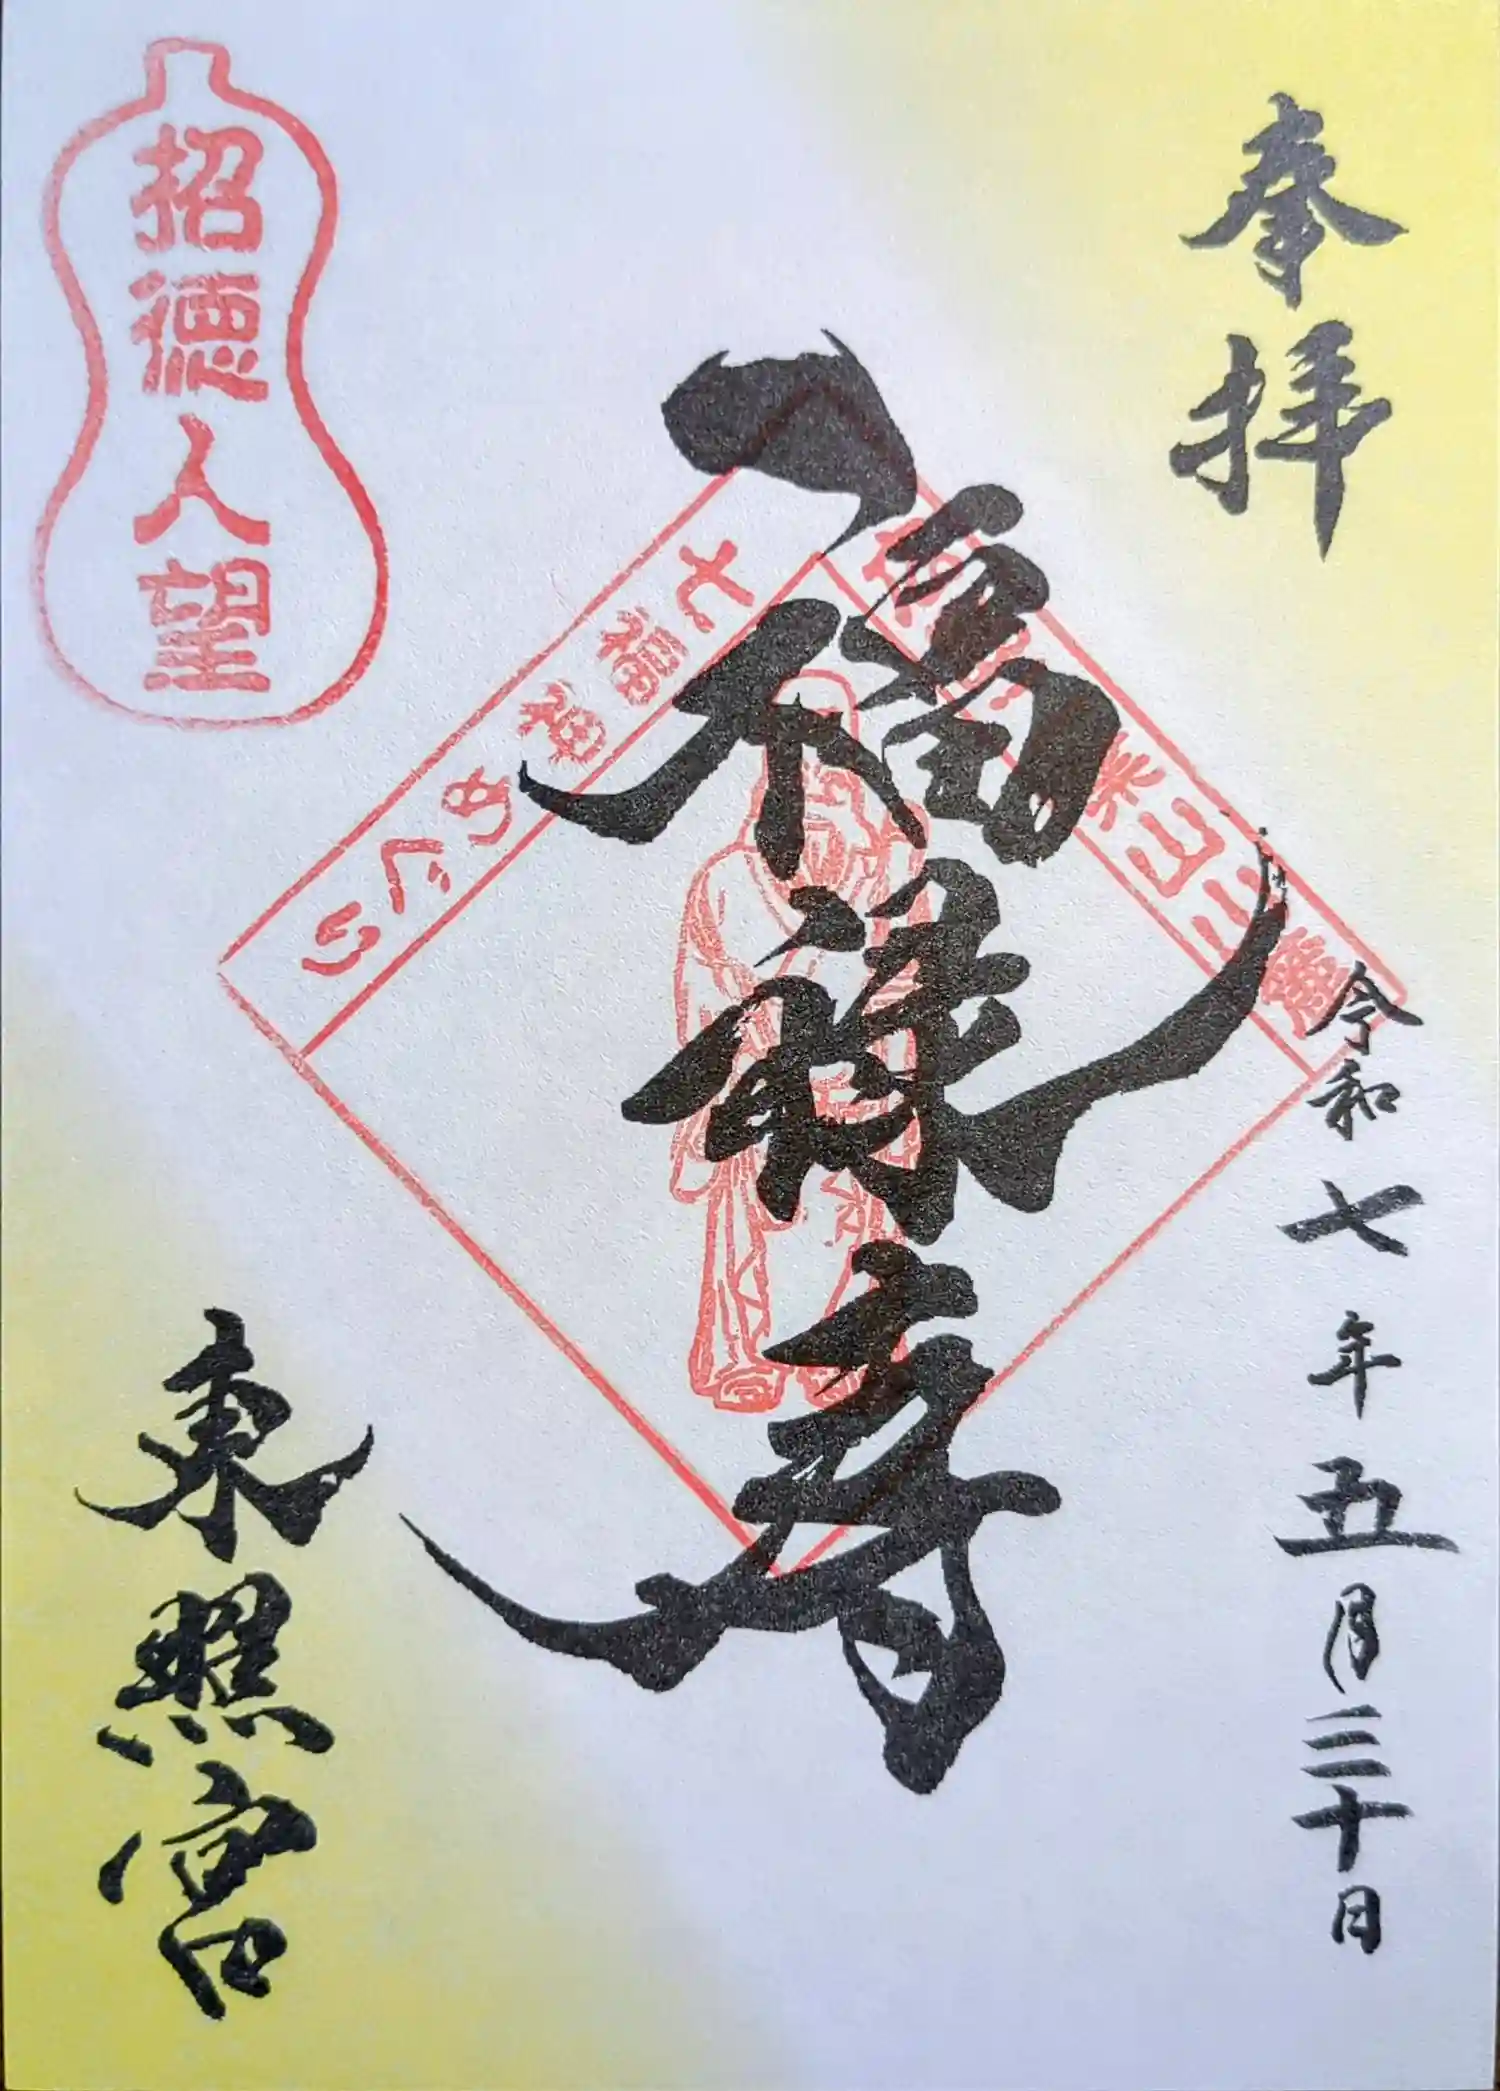 奉拝
令和七年五月三十日
福禄寿
七福神めぐり
招徳人望
東照宮